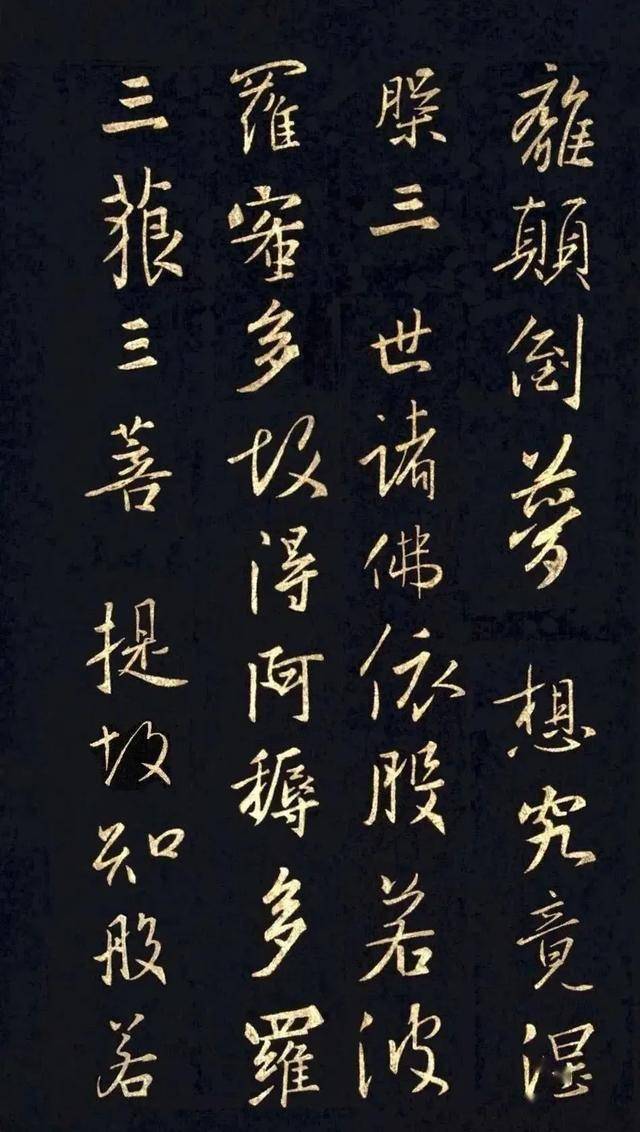 離顛倒夢想究竟涅
槃三世諸佛依般若波
羅蜜多故得阿耨多羅
三藐三菩提故知般若